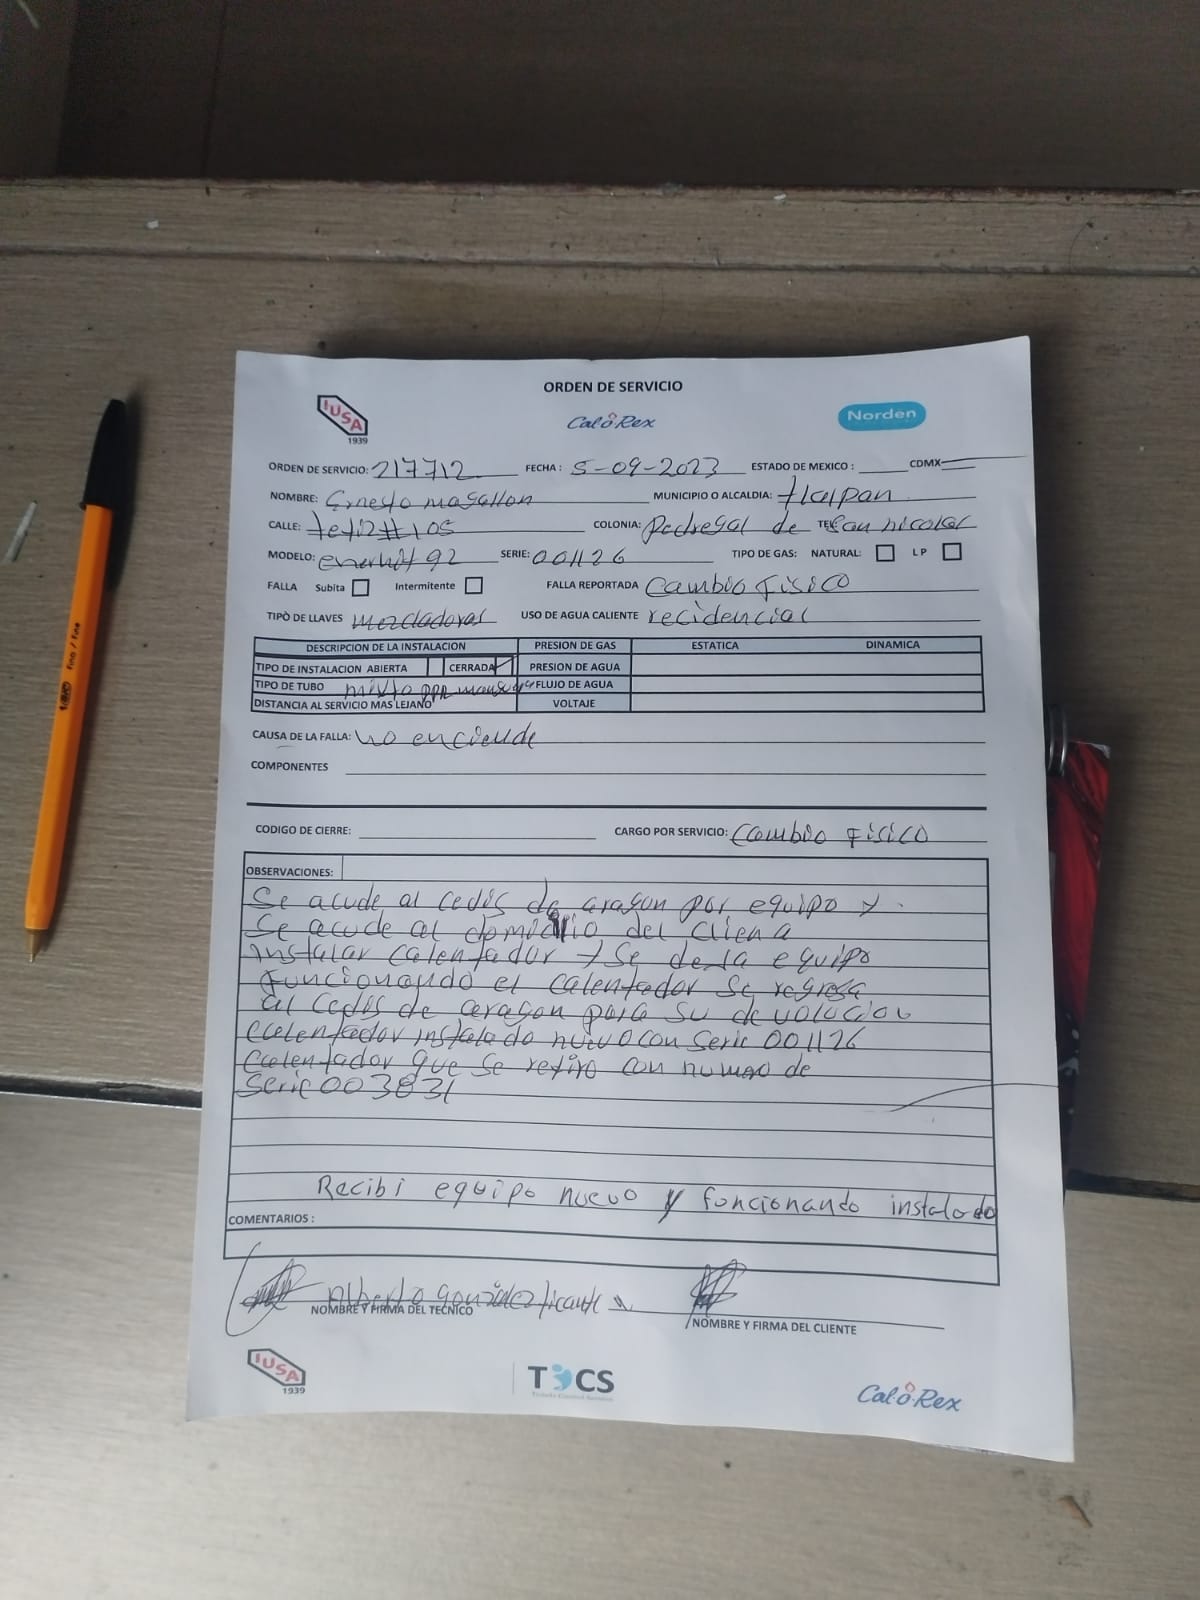 ORDEN DE SERVICIO
IUSA 1939 Cal-o-Rex Norden
ORDEN DE SERVICIO: 217712 FECHA: 5-09-2023 ESTADO DE MEXICO: CDMX
NOMBRE: Ernesto magallon MUNICIPIO O ALCALDIA: tlalpan
CALLE: #105 COLONIA: Pedregal de TEL: San nicolas
MODELO: 92 SERIE: 001126 TIPO DE GAS: NATURAL: LP
FALLA Subita Intermitente FALLA REPORTADA Cambio Fisico
TIPÒ DE LLAVES mezcladoras USO DE AGUA CALIENTE recidencial
DESCRIPCION DE LA INSTALACION PRESION DE GAS ESTATICA DINAMICA
TIPO DE INSTALACION ABIERTA CERRADA PRESION DE AGUA
TIPO DE TUBO mixto ppr FLUJO DE AGUA
DISTANCIA AL SERVICIO MAS LEJANO VOLTAJE
CAUSA DE LA FALLA: no enciende
COMPONENTES
CODIGO DE CIERRE: CARGO POR SERVICIO: Cambio Fisico
OBSERVACIONES:
Se acude al cedis de aragon por equipo y
Se acude al domicilio del Clien a
instalar Calentador y Se deja equipo
funcionando el Calentador Se regresa
al Cedis de aragon para su devolucion
Calentador instalado nuevo con serie 001126
Calentador que se retiro con numero de
Serie 003831
Recibi equipo nuevo y funcionando instalado
COMENTARIOS :
Alberto González
NOMBRE Y FIRMA DEL TECNICO
NOMBRE Y FIRMA DEL CLIENTE
IUSA 1939 TCS Cal-o-Rex
BIC Fino / Fine